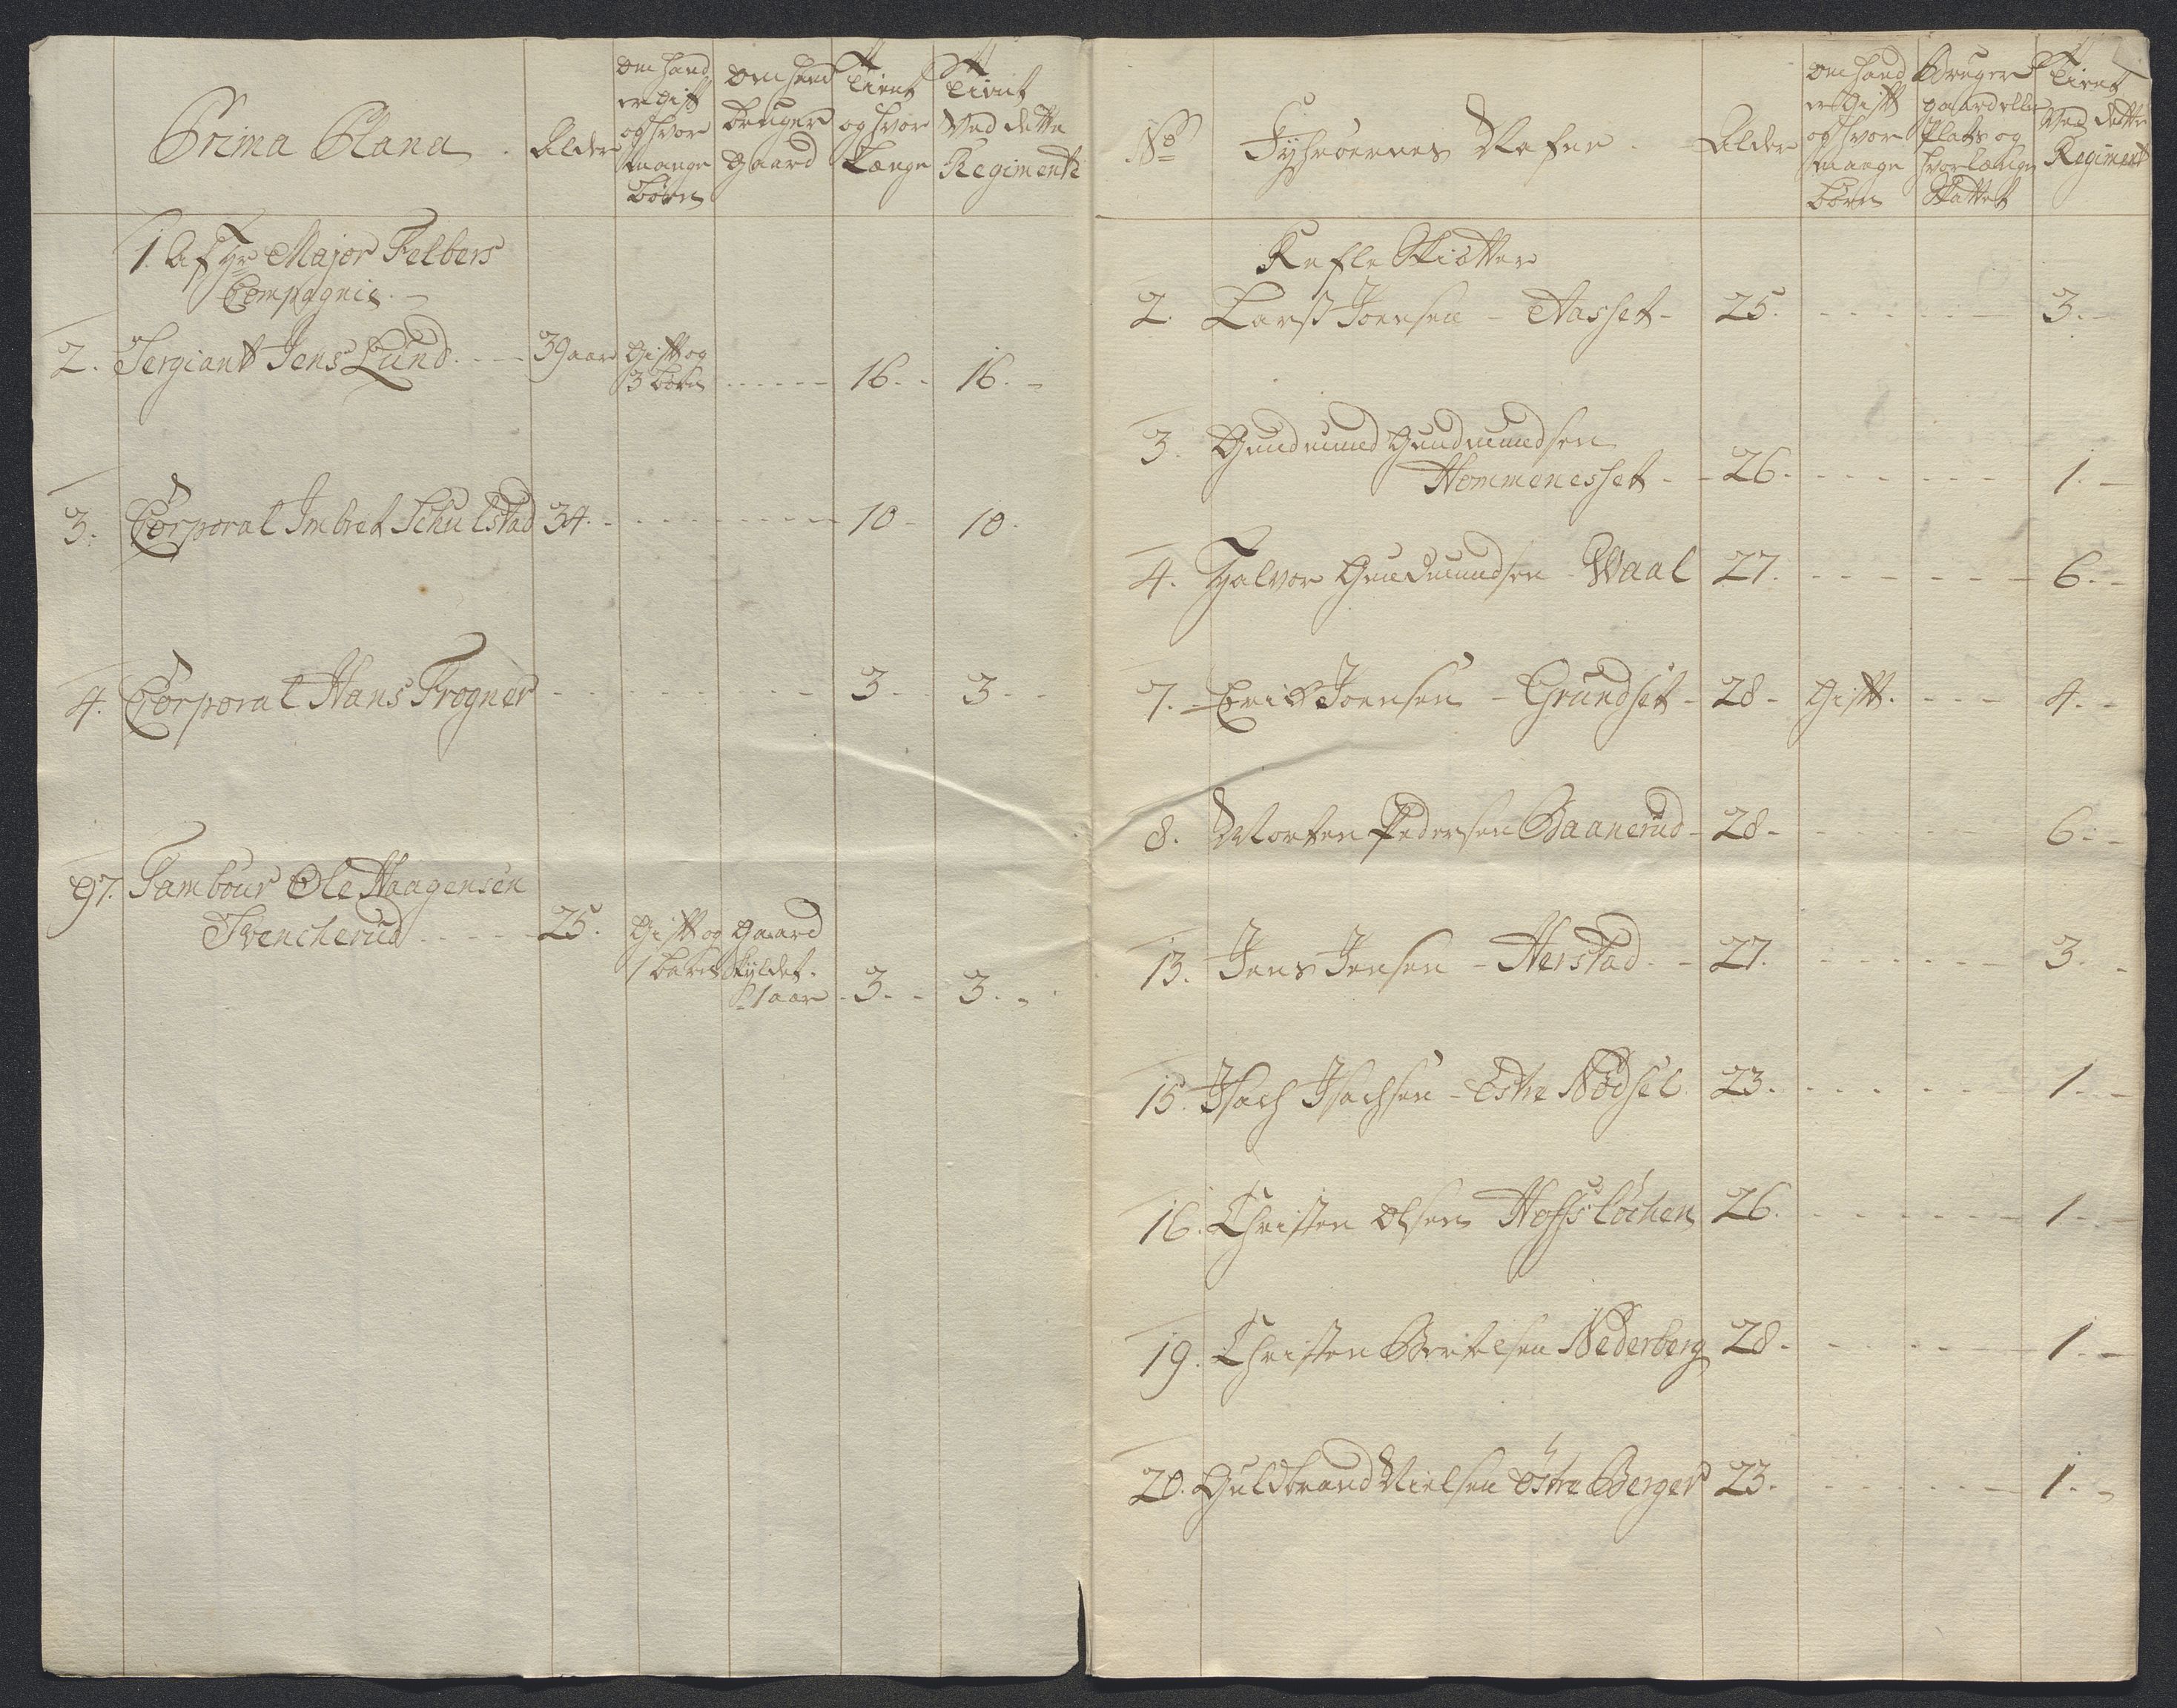 Prima Plana. Alder
Om hand er gift og hvor mange børn
Om hand bruger gaard
Tient og hvor Længe
Tient Ved dette Regimente
1. Af Hr Major Felbers
Compagnie.
2. Sergiant Jens Lund - 39 aar Gift og 3 børn - 16 - 16 -
3. Corporal Imbret Schulstad 34 - 10 - 10
4. Corporal Hans Frogner - 3 - 3 -
97. Tambour Ole Haagensen
Svencherud - 25. Gift og 1 barn Gaard skyldet 1 aar - 3 - 3 -
No Alder
Om hand er gift og hvor mange børn
Bruger gaard eller Plads og hvorlænge Skattet
Tient Ved dette Regiment
Refle Skiøtter
2. Larss Joensen - Aasset - 25. - 3. -
3. Gudmund Gudmundsen
Hommenesset - 26. - 1. -
4. Halvor Gudmundsen - Waal 27. - 6. -
7. Erick Joensen - Grundset - 28 - Gift. - 4. -
8. Morten Pedersen Baanerud - 28 - 6. -
13. Jens Jensen - Herstad - 27. - 3. -
15. Isach Isachsen - Østre Nødsel 23. - 1. -
16. Christen Olsen Hofsløchen 26. - 1. -
19. Christen Bertelsen Nederberg 28. - 1. -
20. Guldbrand Nielsen Østre Berger 23. - 1. -